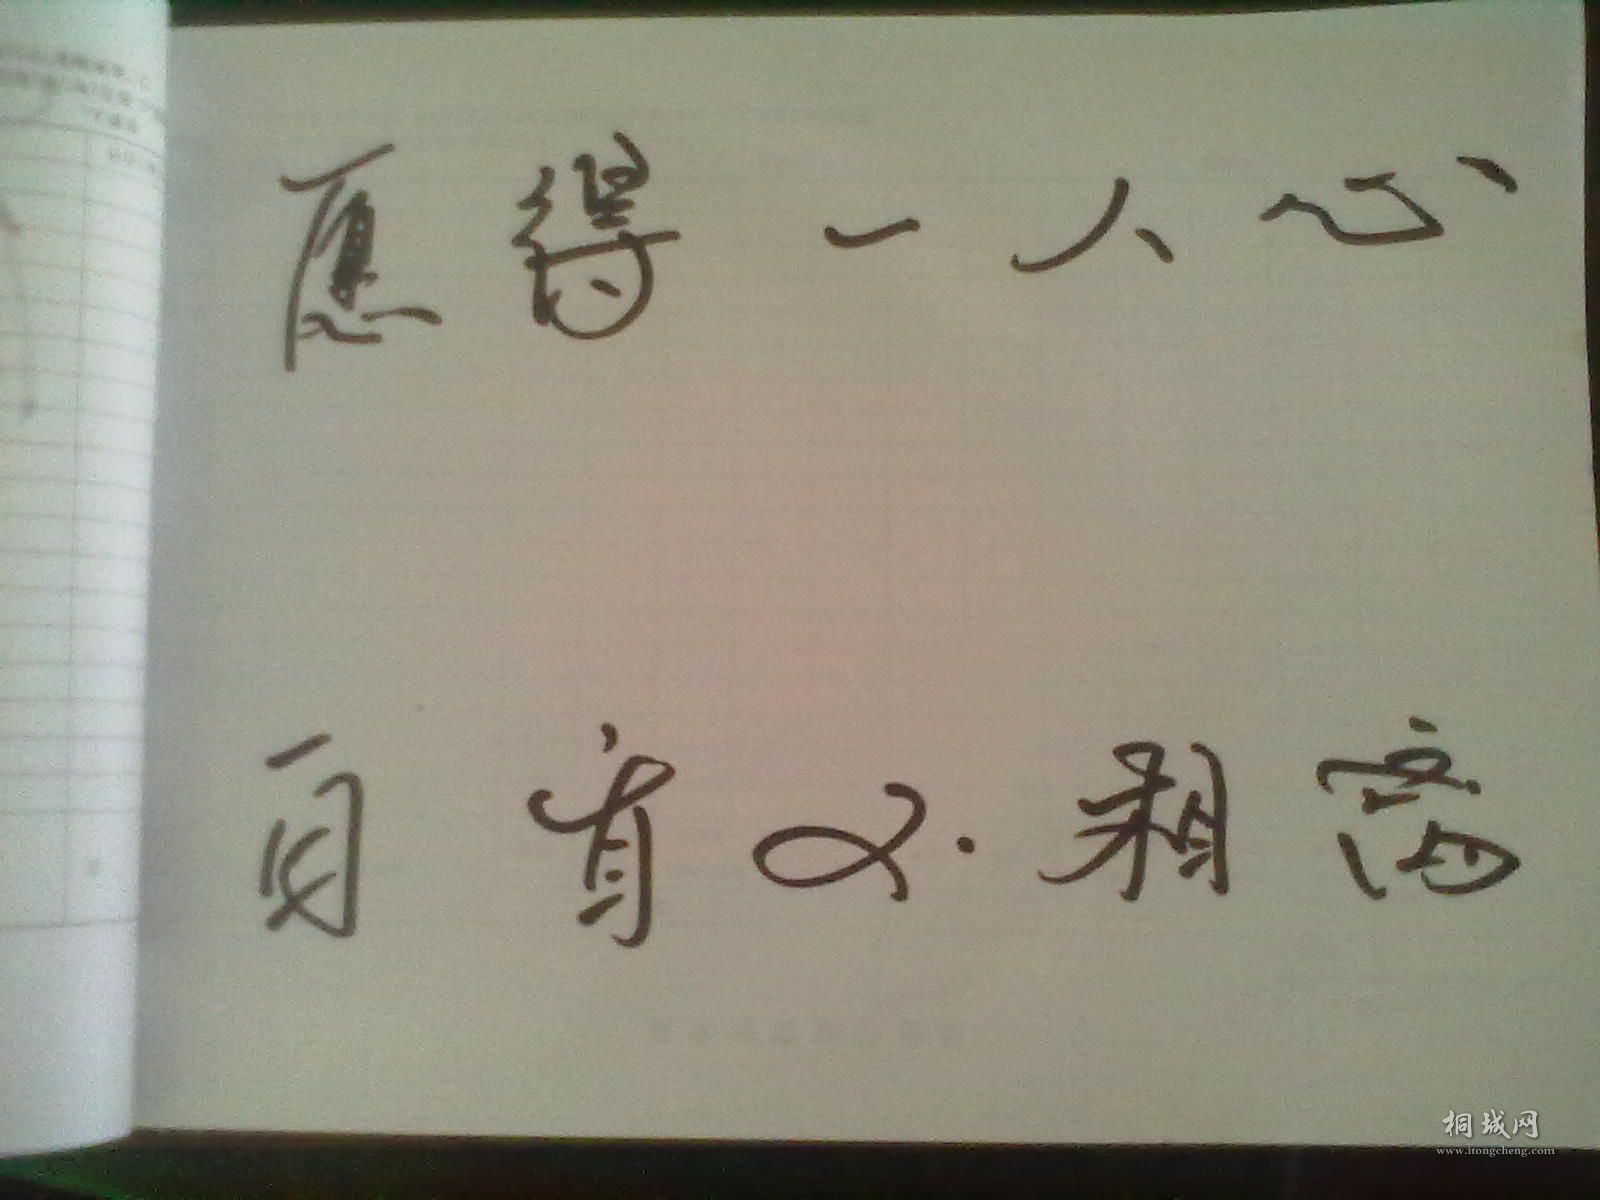 愿得一人心
白首不相离
桐城网
www.itongcheng.com